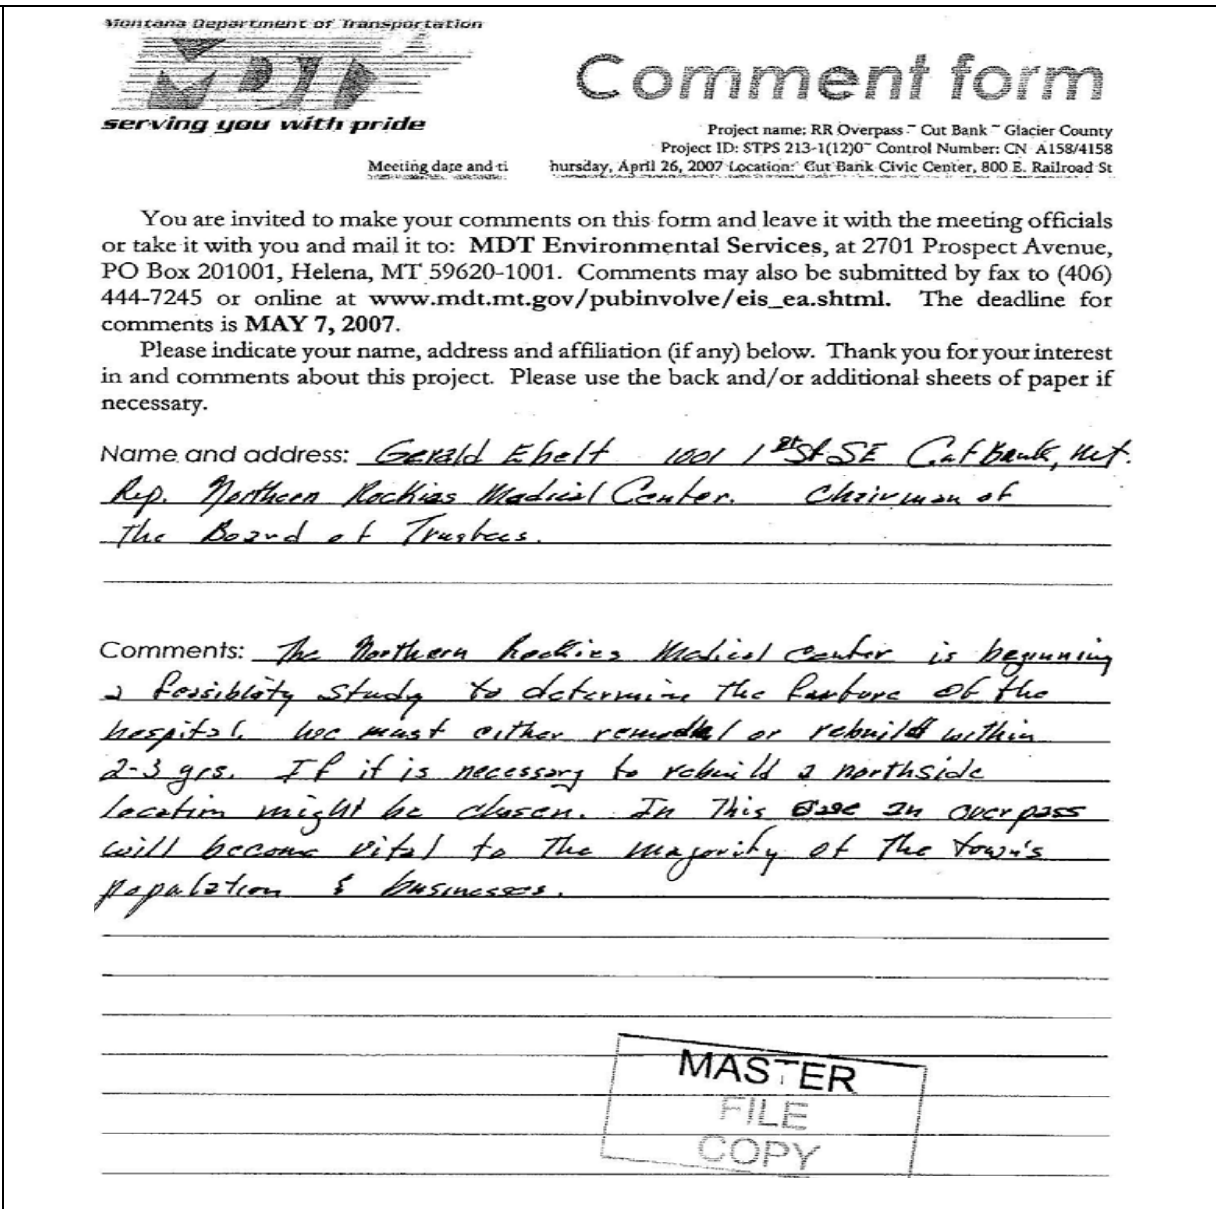 Montana Department of Transportation
MDT
serving you with pride
Comment form
Project name: RR Overpass ~ Cut Bank ~ Glacier County
Project ID: STPS 213-1(12)0~ Control Number: CN A158/4158
Meeting date and ti hursday, April 26, 2007 Location: Cut Bank Civic Center, 800 E. Railroad St
You are invited to make your comments on this form and leave it with the meeting officials
or take it with you and mail it to: MDT Environmental Services, at 2701 Prospect Avenue,
PO Box 201001, Helena, MT 59620-1001. Comments may also be submitted by fax to (406)
444-7245 or online at www.mdt.mt.gov/pubinvolve/eis_ea.shtml. The deadline for
comments is MAY 7, 2007.
Please indicate your name, address and affiliation (if any) below. Thank you for your interest
in and comments about this project. Please use the back and/or additional sheets of paper if
necessary.
Name and address: Gerald Ebelt 1001 1st St SE Cut Bank, Mt.
Rep. Northern Rockies Medical Center. Chairman of
The Board of Trustees.
Comments: The Northern Rockies Medical Center is beginning
a feasiblity study to determine the future of the
hospital. We must either remodel or rebuild within
2-3 yrs. If it is necessary to rebuild a northside
location might be chosen. In this case an overpass
will become vital to the majority of the town's
population & businesses.
MASTER
FILE
COPY